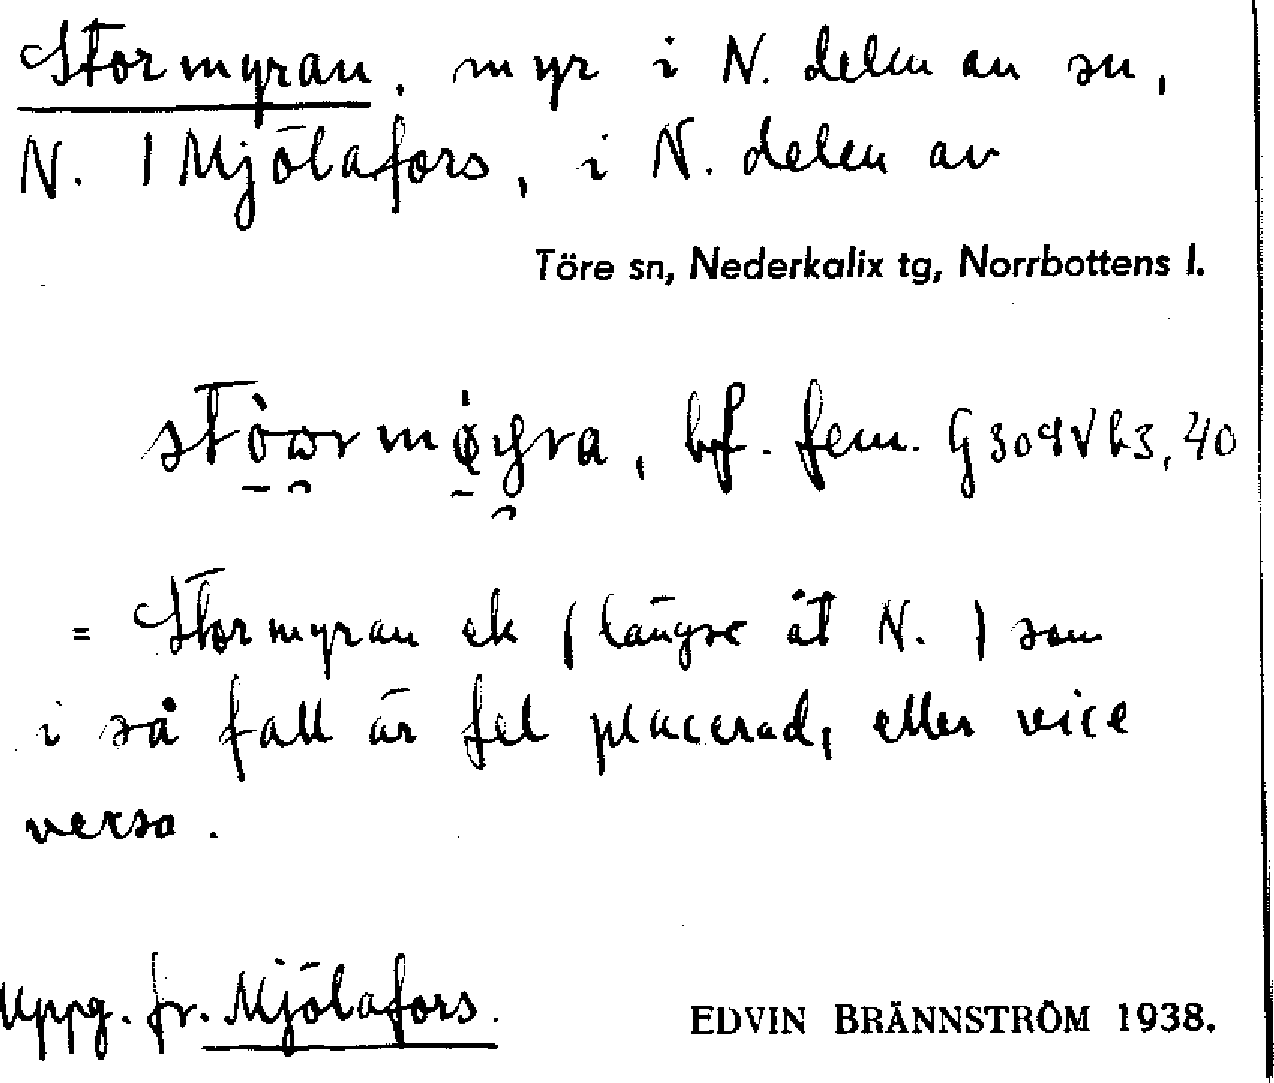 Stormyran, myr i N. delen av sn,
N. / Mjölafors, i N. delen av
Töre sn, Nederkalix tg, Norrbottens l.
bf. fem.
= Stormyran ek (längst åt N.) som
i så fall är fel placerad, eller vice
versa.
Uppg. fr. Mjölafors.
EDVIN BRÄNNSTRÖM 1938.